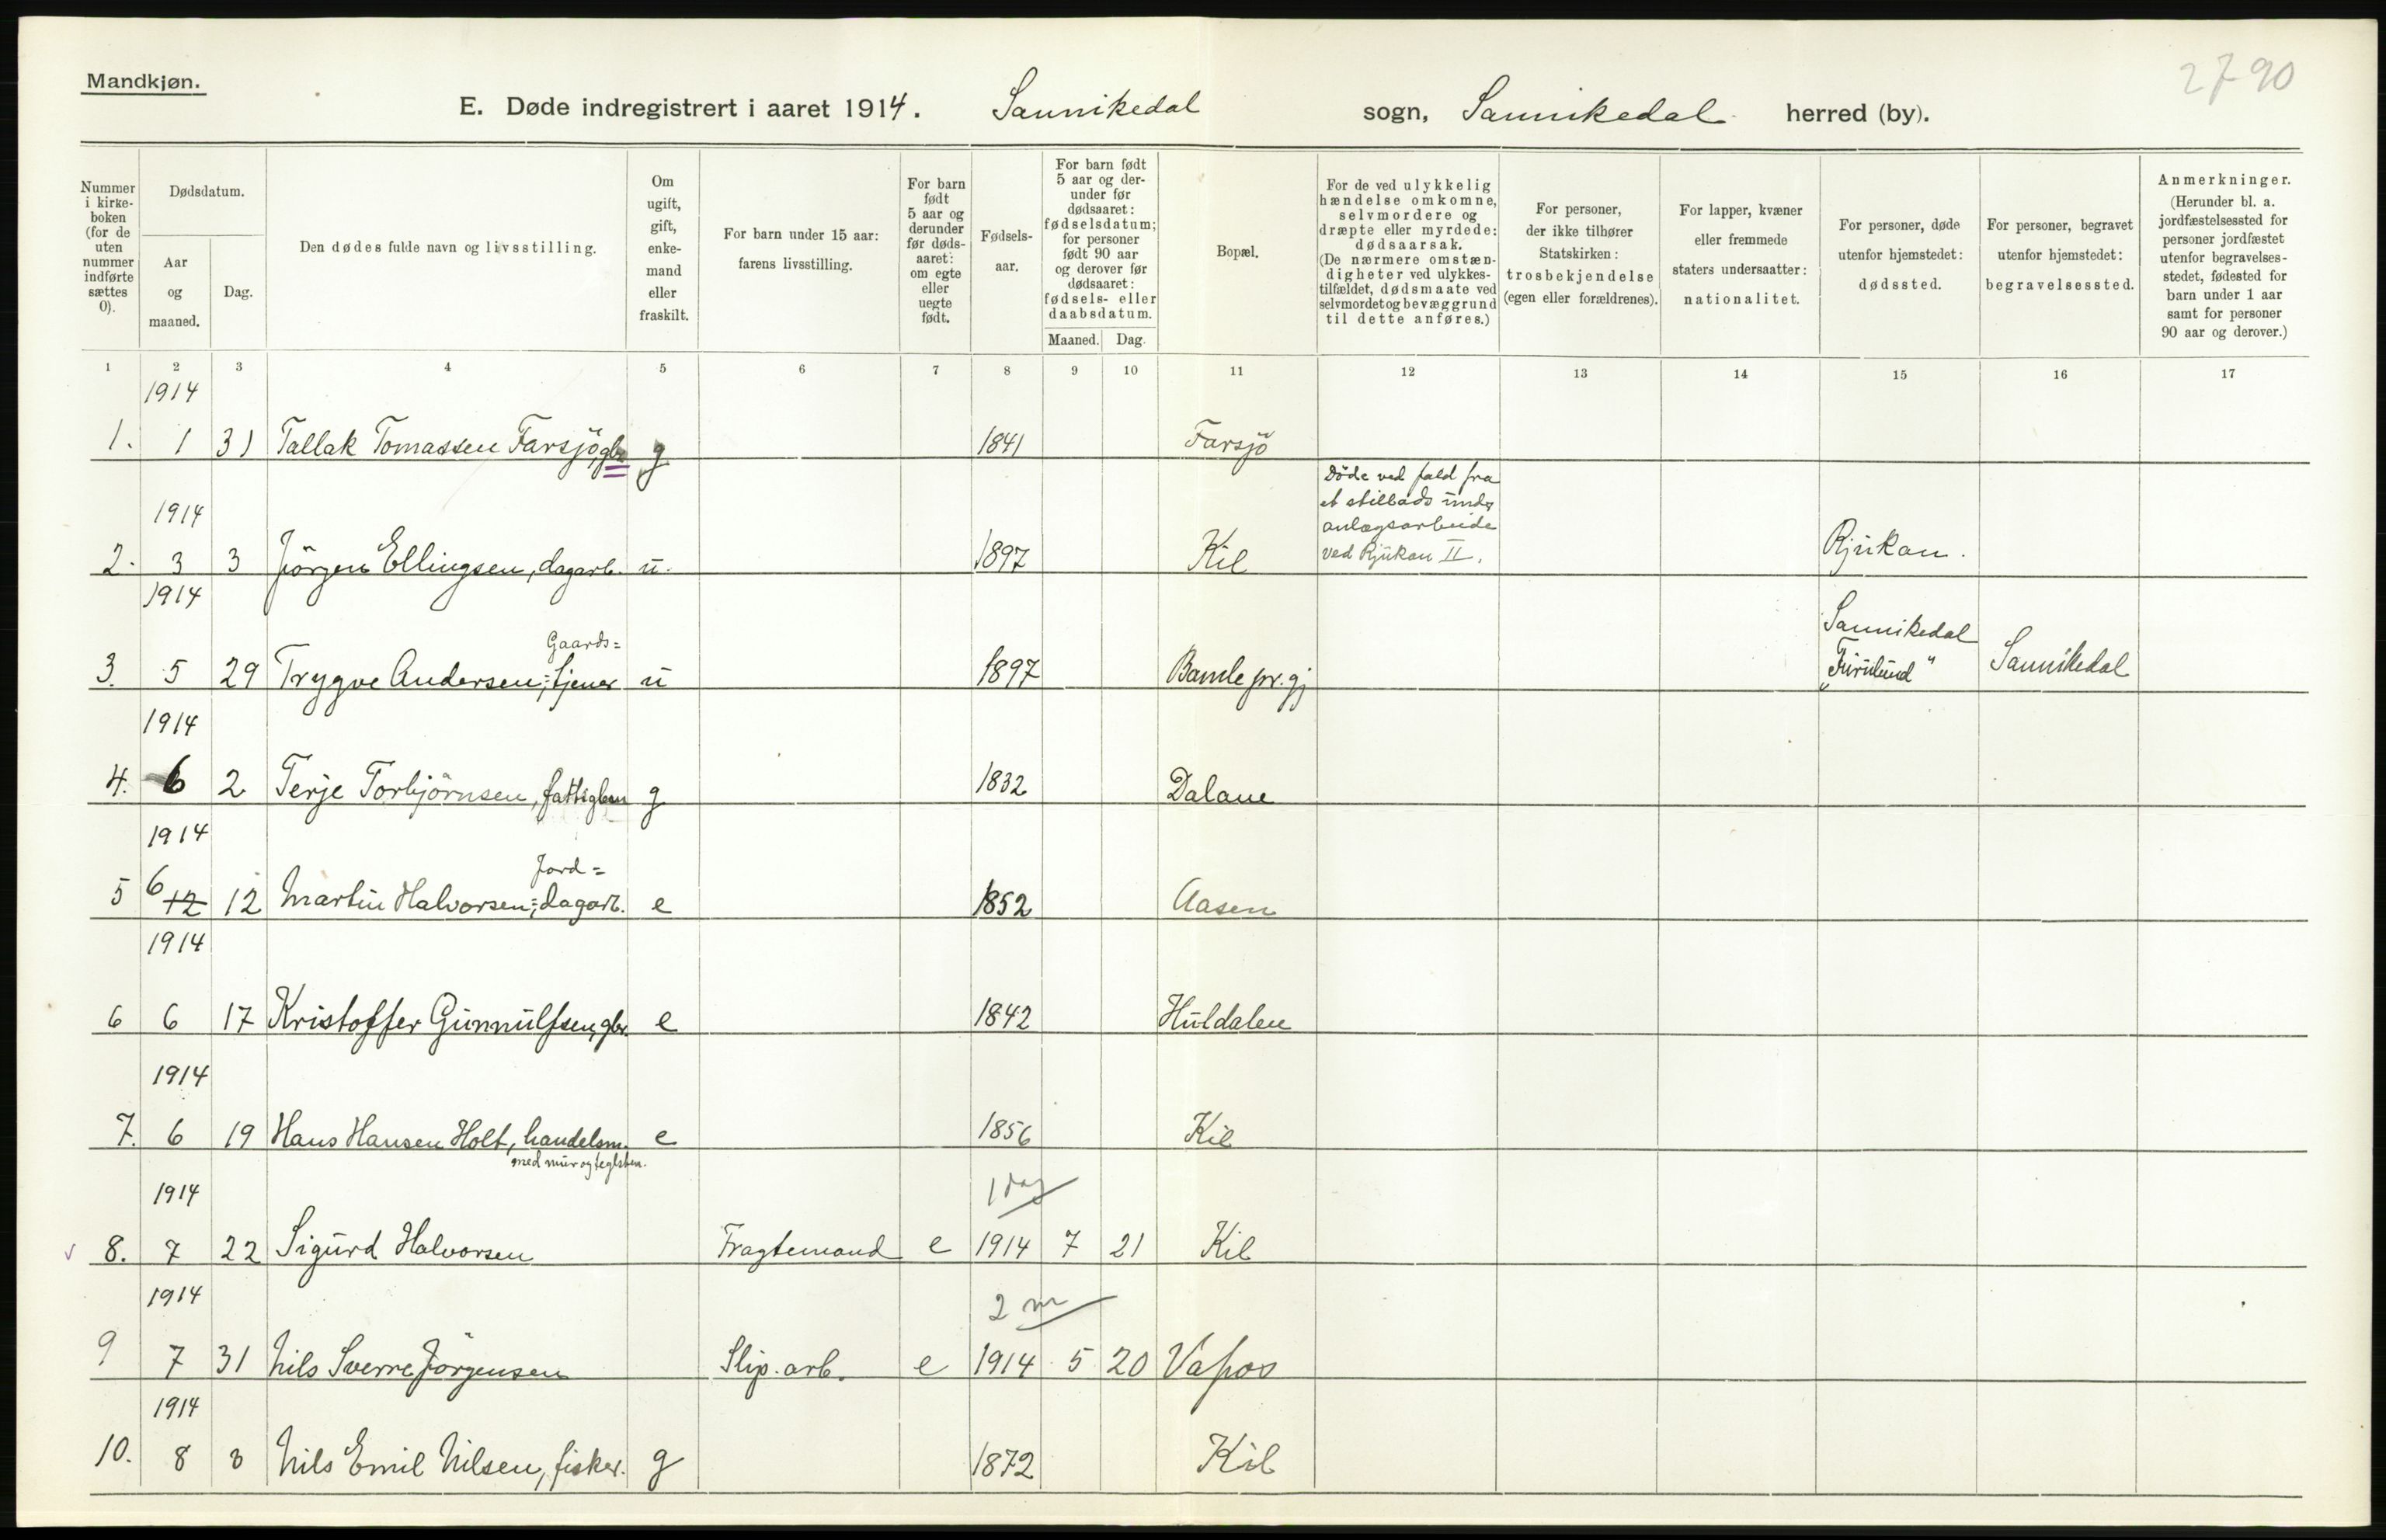 2790
Mandkjøn.
E. Døde indregistrert i aaret 1914. Sannikedal sogn, Sannikedal herred (by).
Nummer i kirke-boken (for de uten nummer indførte sættes 0).
Dødsdatum.
Aar og maaned.
Dag.
Den dødes fulde navn og livsstilling.
Om ugift, gift, enke-mand eller fraskilt.
For barn under 15 aar: farens livsstilling.
For barn født 5 aar og derunder før døds-aaret: om egte eller uegte født.
Fødsels-aar.
For barn født 5 aar og der-under før dødsaaret: fødselsdatum; for personer født 90 aar og derover før dødsaaret: fødsels- eller daabsdatum.
Maaned. Dag.
Bopæl.
For de ved ulykkelig hændelse omkomne, selvmordere og dræpte eller myrdede: dødsaarsak. (De nærmere omstæn-digheter ved ulykkes-tilfældet, dødsmaate ved selvmordet og bevæggrund til dette anføres.)
For personer, der ikke tilhører Statskirken: trosbekjendelse (egen eller forældrenes).
For lapper, kvæner eller fremmede staters undersaatter: nationalitet.
For personer, døde utenfor hjemstedet: dødssted.
For personer, begravet utenfor hjemstedet: begravelsessted.
Anmerkninger. (Herunder bl. a. jordfæstelsessted for personer jordfæstet utenfor begravelses-stedet, fødested for barn under 1 aar samt for personer 90 aar og derover.)
1 2 3 4 5 6 7 8 9 10 11 12 13 14 15 16 17
1914
1. 1 31 Tallak Tomassen Farsjö, gbr g 1841 Farsjö
Döde ved fald fra
et stillads under
1914
anlægsarbeide
2. 3 3 Jörgen Ellingsen, dagarb. u. 1897 Kil ved Rjukan II. Rjukan.
1914
Gaards= Sannikedal
3. 5 29 Trygve Andersen,=tjener u 1897 Bamle pr.gj „Furulund" Sannikedal
1914
4. 6 2 Terje Torbjörnsen, fattiglem g 1832 Dalane
1914
Jord=
5 6 12 12 Martin Halvorsen,=dagarb. e 1852 Aasen
1914
6 6 17 Kristoffer Gunnulfsen, gbr. e 1842 Huldalen
1914
7. 6 19 Hans Hansen Holt, handelsm. e 1856 Kil
med mur og teglsten.
1914 1 dag
8. 7 22 Sigurd Halvorsen Fragtemand e 1914 7 21 Kil
1914 2 m
9 7 31 Nils Sverre Jörgensen Slip. arb. e 1914 5 20 Vafos
1914
10. 8 3 Nils Emil Nilsen, fisker. g 1872 Kil